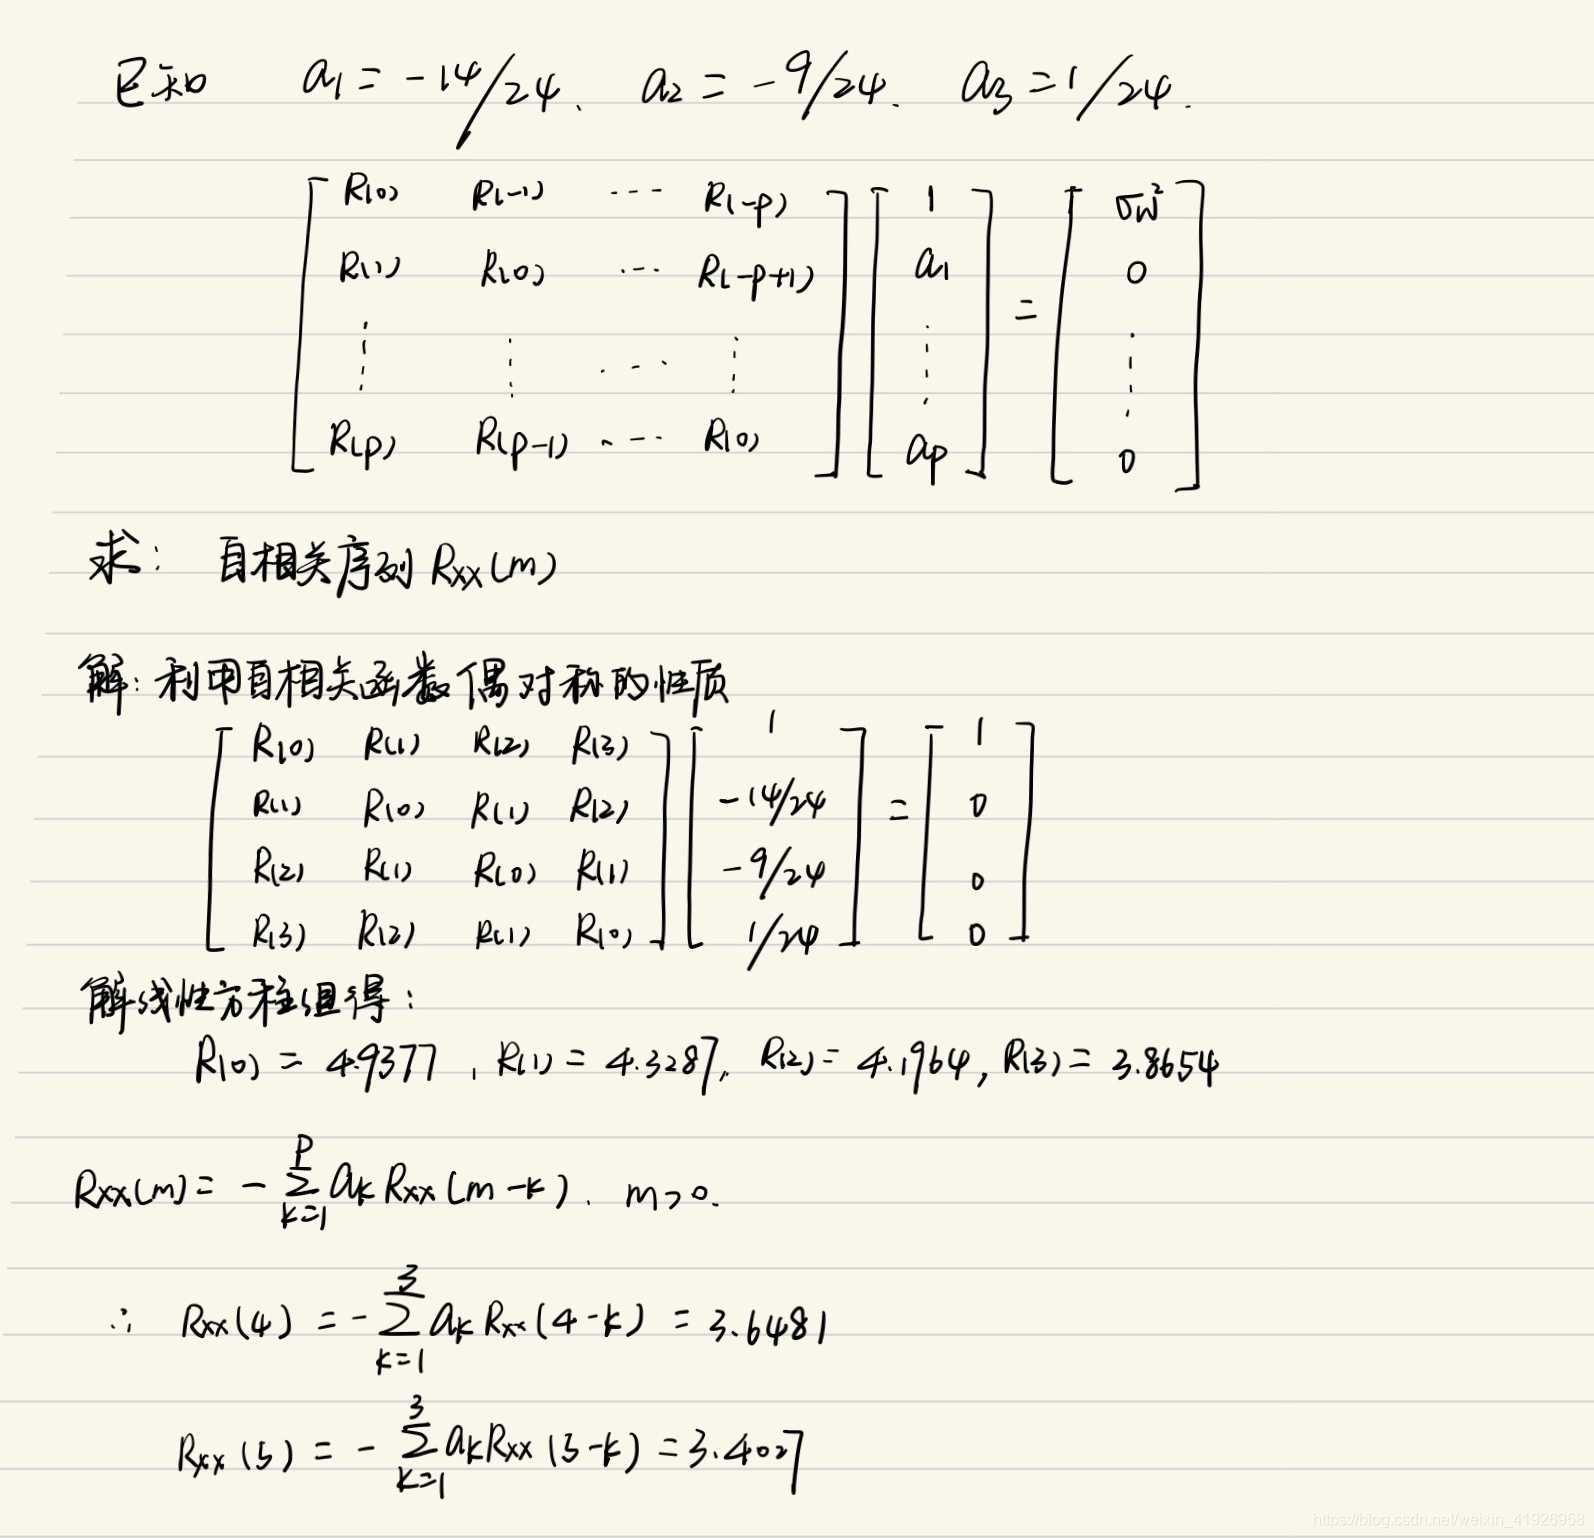 已知 a1 = -14/24、 a2 = -9/24. a3 = 1/24.
[ R(0) R(-1) ··· R(-p) ] [ 1 ] [ σw² ]
[ R(1) R(0) ··· R(-p+1) ] [ a1 ] = [ 0 ]
[ ⋮ ⋮ ··· ⋮ ] [ ⋮ ] [ ⋮ ]
[ R(p) R(p-1) ··· R(0) ] [ ap ] [ 0 ]
求: 自相关序列 Rxx(m)
解: 利用自相关函数偶对称的性质
[ R(0) R(1) R(2) R(3) ] [ 1 ] [ 1 ]
[ R(1) R(0) R(1) R(2) ] [ -14/24 ] = [ 0 ]
[ R(2) R(1) R(0) R(1) ] [ -9/24 ] [ 0 ]
[ R(3) R(2) R(1) R(0) ] [ 1/24 ] [ 0 ]
解线性方程组得:
R(0) = 4.9377, R(1) = 4.3287, R(2) = 4.1964, R(3) = 3.8654
Rxx(m) = - Σ_{k=1}^{P} ak Rxx(m-k). m>0.
∴ Rxx(4) = - Σ_{k=1}^{3} ak Rxx(4-k) = 3.6481
Rxx(5) = - Σ_{k=1}^{3} ak Rxx(5-k) = 3.4027
https://blog.csdn.net/weixin_41926958